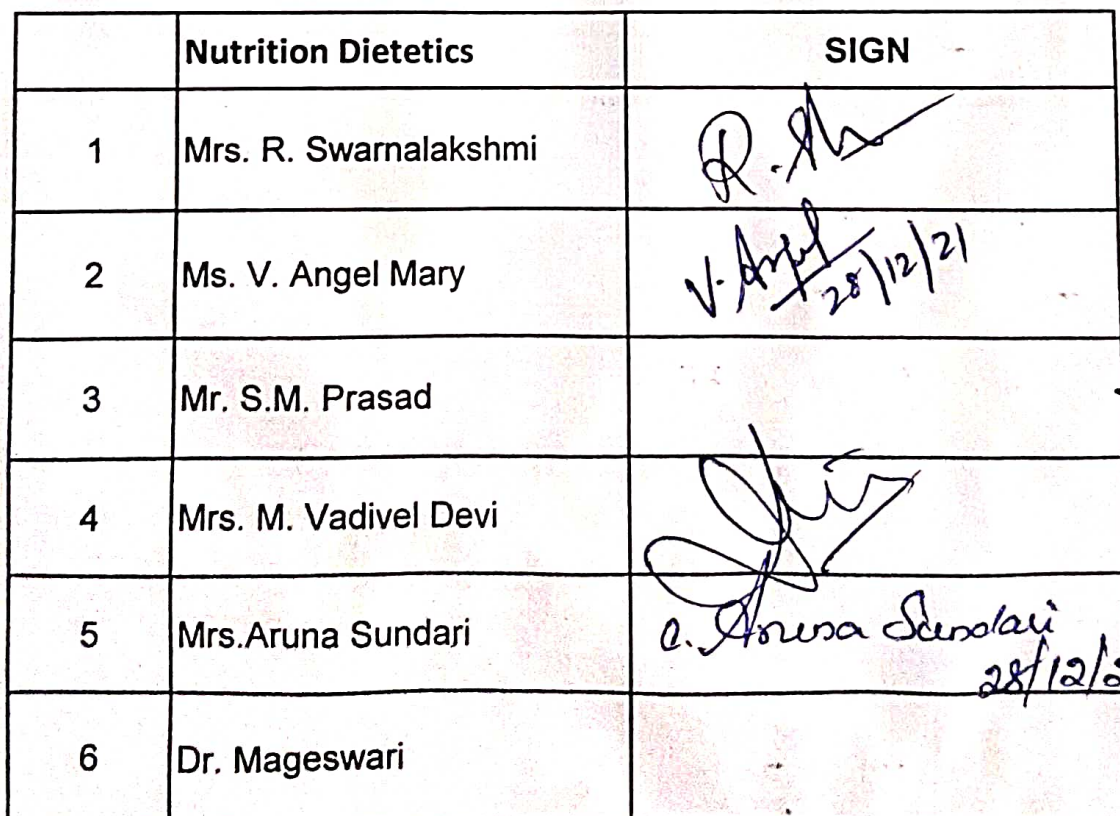 Nutrition Dietetics SIGN
1 Mrs. R. Swarnalakshmi R.
2 Ms. V. Angel Mary V. Angel
28/12/21
3 Mr. S.M. Prasad
4 Mrs. M. Vadivel Devi
5 Mrs.Aruna Sundari a. Aruna Sundari
28/12/2
6 Dr. Mageswari